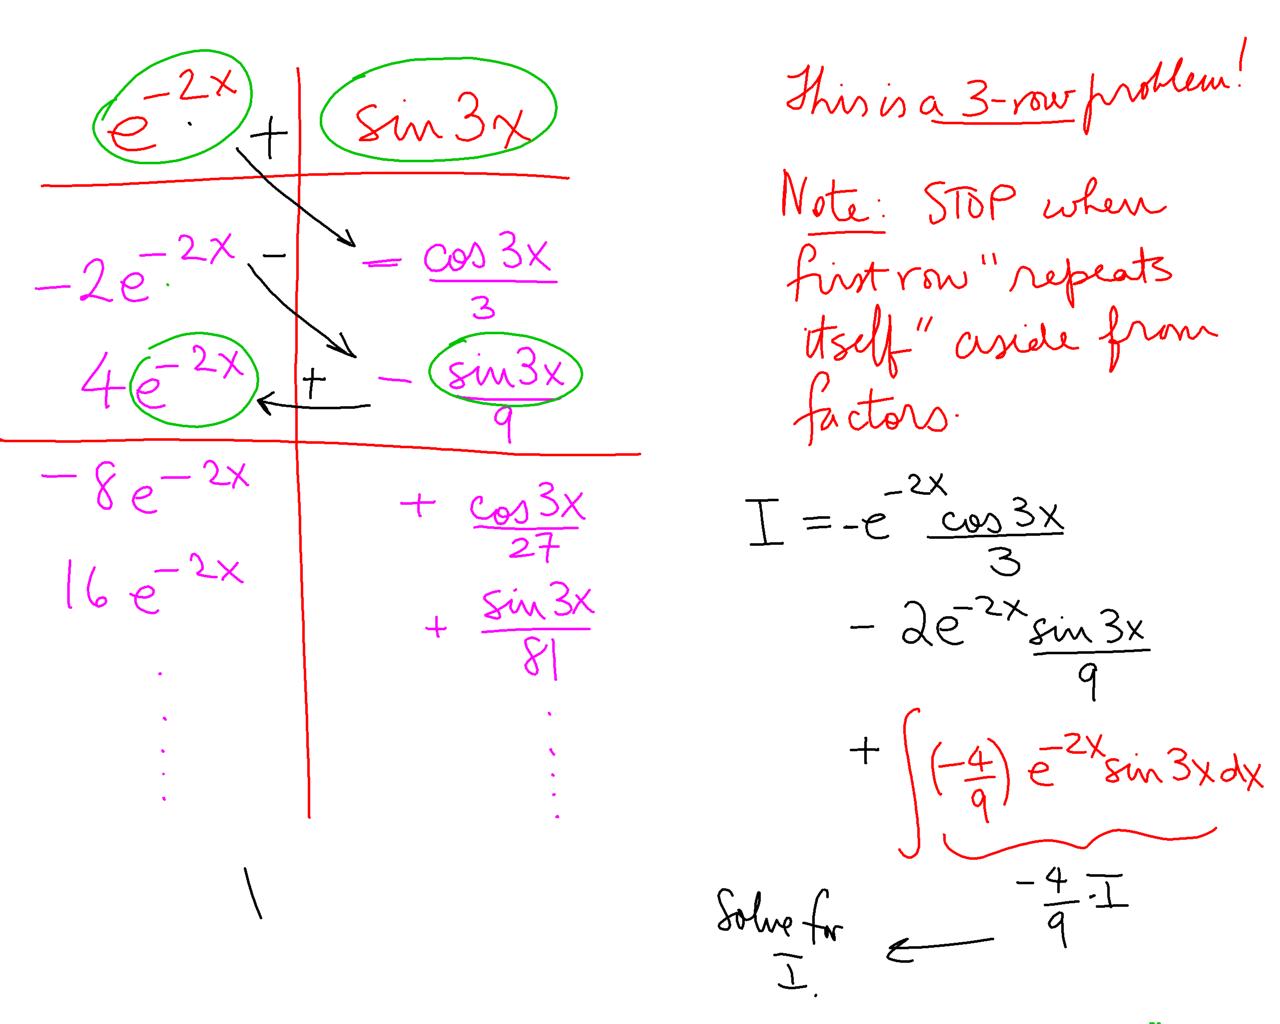 e^{-2x} + sin 3x
-2e^{-2x} - - cos 3x / 3
4e^{-2x} + - sin 3x / 9
-8e^{-2x} + cos 3x / 27
16e^{-2x} + sin 3x / 81
This is a 3-row problem!
Note: STOP when
first row "repeats
itself" aside from
factors.
I = -e^{-2x} cos 3x / 3
- 2e^{-2x} sin 3x / 9
+ ∫ (-4/9) e^{-2x} sin 3x dx
-4/9 · I
Solve for
I.